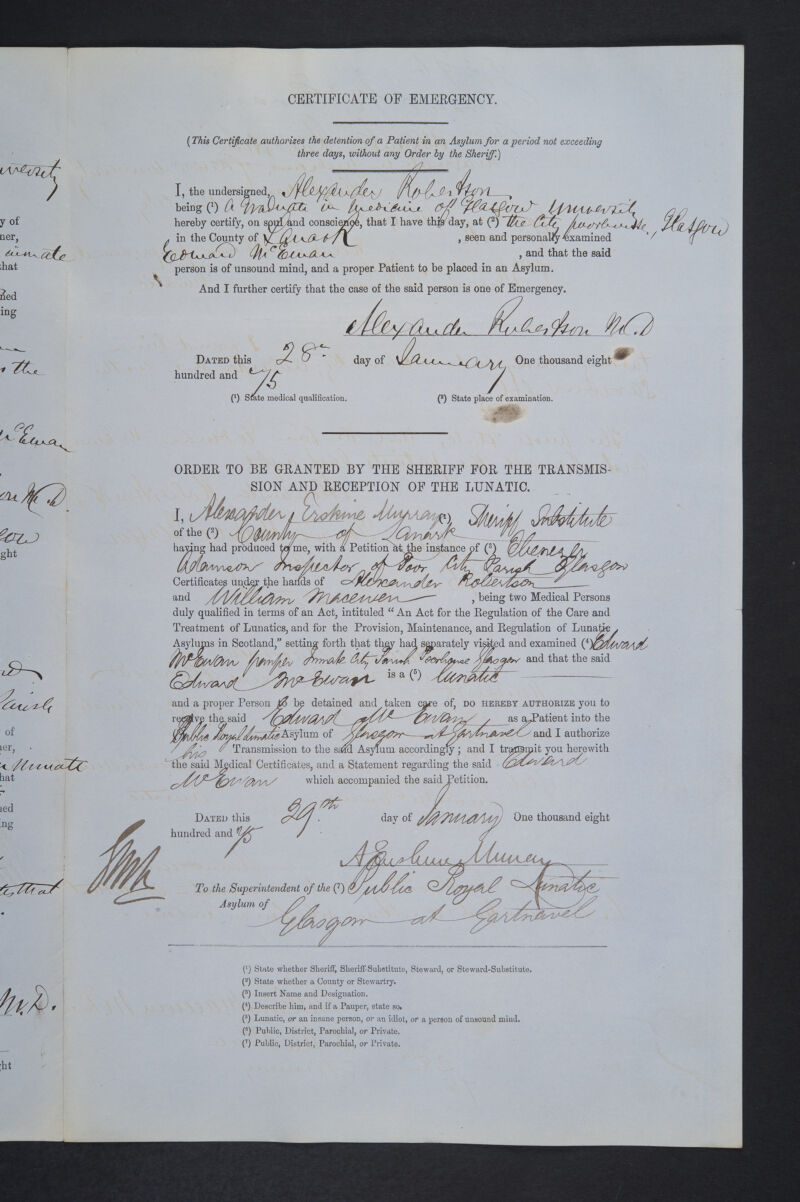 CERTIFICATE OF EMERGENCY.
(This Certificate authorizes the detention of a Patient in an Asylum for a period not exceeding
three days, without any Order by the Sheriff.)
I, the undersigned, Alexander Robertson
being (¹) a Graduate in Medicine of Glasgow University
hereby certify, on soul and conscience, that I have this day, at (²) the City poorhouse, Glasgow
, in the County of Lanark , seen and personally examined
Edward McEwan , and that the said
person is of unsound mind, and a proper Patient to be placed in an Asylum.
And I further certify that the case of the said person is one of Emergency.
Alexander Robertson M.D
DATED this 28th day of January One thousand eight
hundred and 75
(¹) State medical qualification. (²) State place of examination.
ORDER TO BE GRANTED BY THE SHERIFF FOR THE TRANSMIS-
SION AND RECEPTION OF THE LUNATIC.
I, Alexander Erskine Murray (¹) Sheriff Substitute
of the (²) County of Lanark
having had produced to me, with a Petition at the instance of (³) Ebenezer
Adamson Inspector of Poor City Parish Glasgow
Certificates under the hands of Alexander Robertson
and William Macewen , being two Medical Persons
duly qualified in terms of an Act, intituled "An Act for the Regulation of the Care and
Treatment of Lunatics, and for the Provision, Maintenance, and Regulation of Lunatic
Asylums in Scotland," setting forth that they had separately visited and examined (⁴) Edward
McEwan pauper Inmate City Parish Poorhouse Glasgow and that the said
Edward McEwan is a (⁵) lunatic
and a proper Person to be detained and taken care of, DO HEREBY AUTHORIZE you to
receive the said Edward McEwan as a Patient into the
Public Royal Lunatic Asylum of Glasgow at Gartnavel and I authorize
his Transmission to the said Asylum accordingly; and I transmit you herewith
the said Medical Certificates, and a Statement regarding the said Edward
McEwan which accompanied the said Petition.
DATED this 29th day of January One thousand eight
hundred and 75
A Erskine Murray
To the Superintendent of the (⁷) Public Royal Lunatic
Asylum of Glasgow at Gartnavel
(¹) State whether Sheriff, Sheriff-Substitute, Steward, or Steward-Substitute.
(²) State whether a County or Stewartry.
(³) Insert Name and Designation.
(⁴) Describe him, and if a Pauper, state so.
(⁵) Lunatic, or an insane person, or an idiot, or a person of unsound mind.
(⁶) Public, District, Parochial, or Private.
(⁷) Public, District, Parochial, or Private.